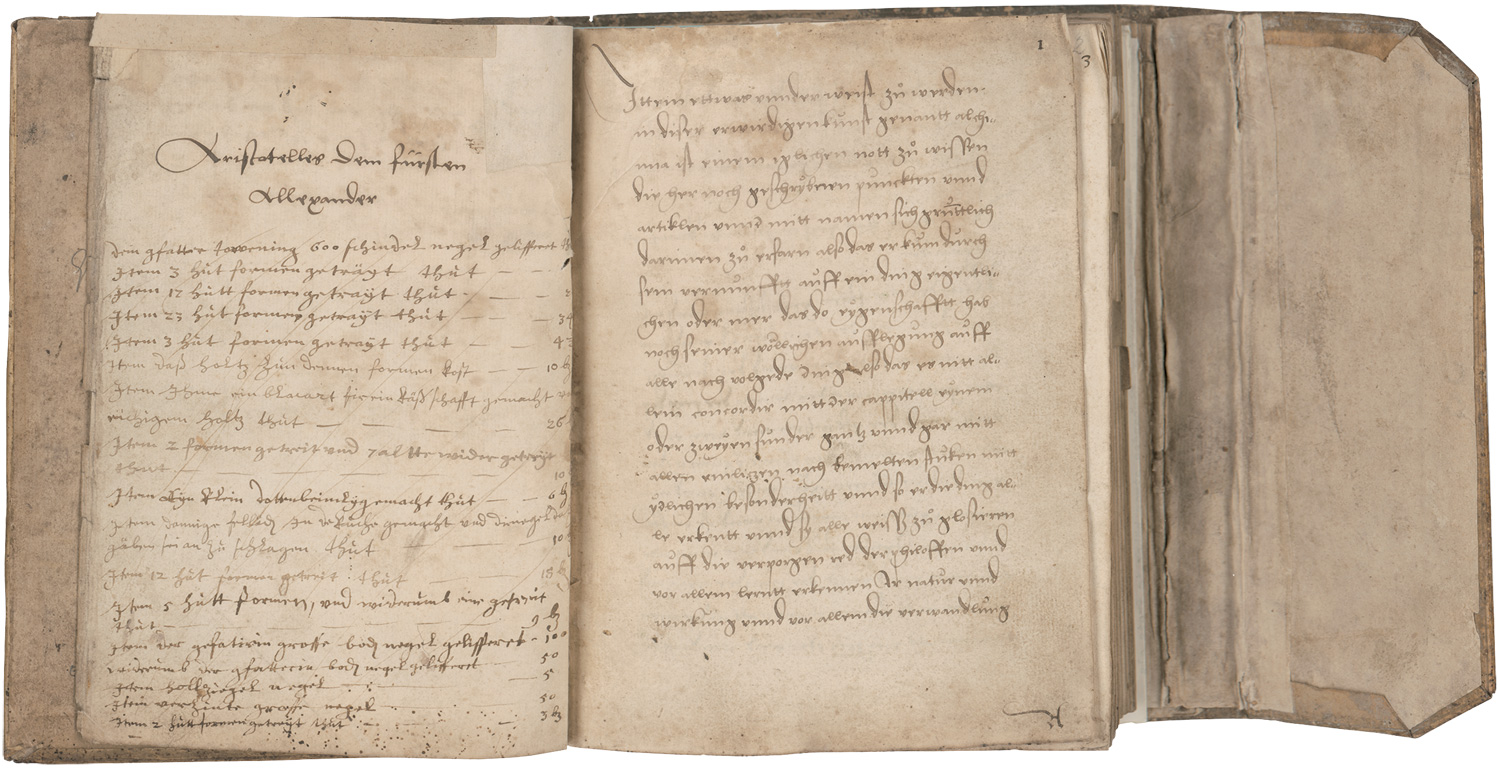 Aristotelles dem fürsten
Allexander
dem gfatter 600 schindel negel geliffferet
Item 3 hüt formen getrayt thüt
Item 12 hütt formen getrayt thüt
Item 23 hüt formen getrayt thüt 34
Item 3 hüt formen getrayt thüt 4
Item daß holtz zun dennen formen kost 10
Item Ihme ein gemacht
eichigem holtz thüt 26
Item 2 formen getreit und wider getreyt
thüt 10
Item klein gemacht thüt 6
Item gemacht und
zu schlagen thüt 10
Item 12 hüt formen getreit thüt 18
Item 5 hütt formen, und widerumb eine getreit
thüt
Item der gefatterin grosse bod negel gelifferet 100
widerumb der gfatterin bod negel gelifferet 50
Item hollziegel negel 5
Item verzinte grosse negel 50
Item 2 hütt formen getreyt thüt 3
1
3
Ittem ettwas vnnder weist zů werden
in diser erwirdigen kunst genantt alchi-
mia ist einem yglichen nott zů wissen
die her noch geschrybenen punckten vnnd
artiklen vnnd mitt namen sich grüntlich
darinnen zů erfarn also das er kum durch
sein vernunfftt auff ein ding eigentli-
chen oder mer das do eygenschafftt hab
noch seiner wöllichen aussflegung auff
alle nach volgede ding also das er mitt al-
lem concordir mitt der cappitell eynem
oder zweyen sunder gantz vnnd gar mitt
allen einligen nach bemelten stuken mitt
ydlichen besonderheitt vnnd so er die ding al-
le erkentt vnnd sy alle weiss zů glosieren
auff die verporgen red der philoffen vnnd
vor allem lerntt erkennen Ir natur vnnd
wirkung vnnd vor allem die verwandlung